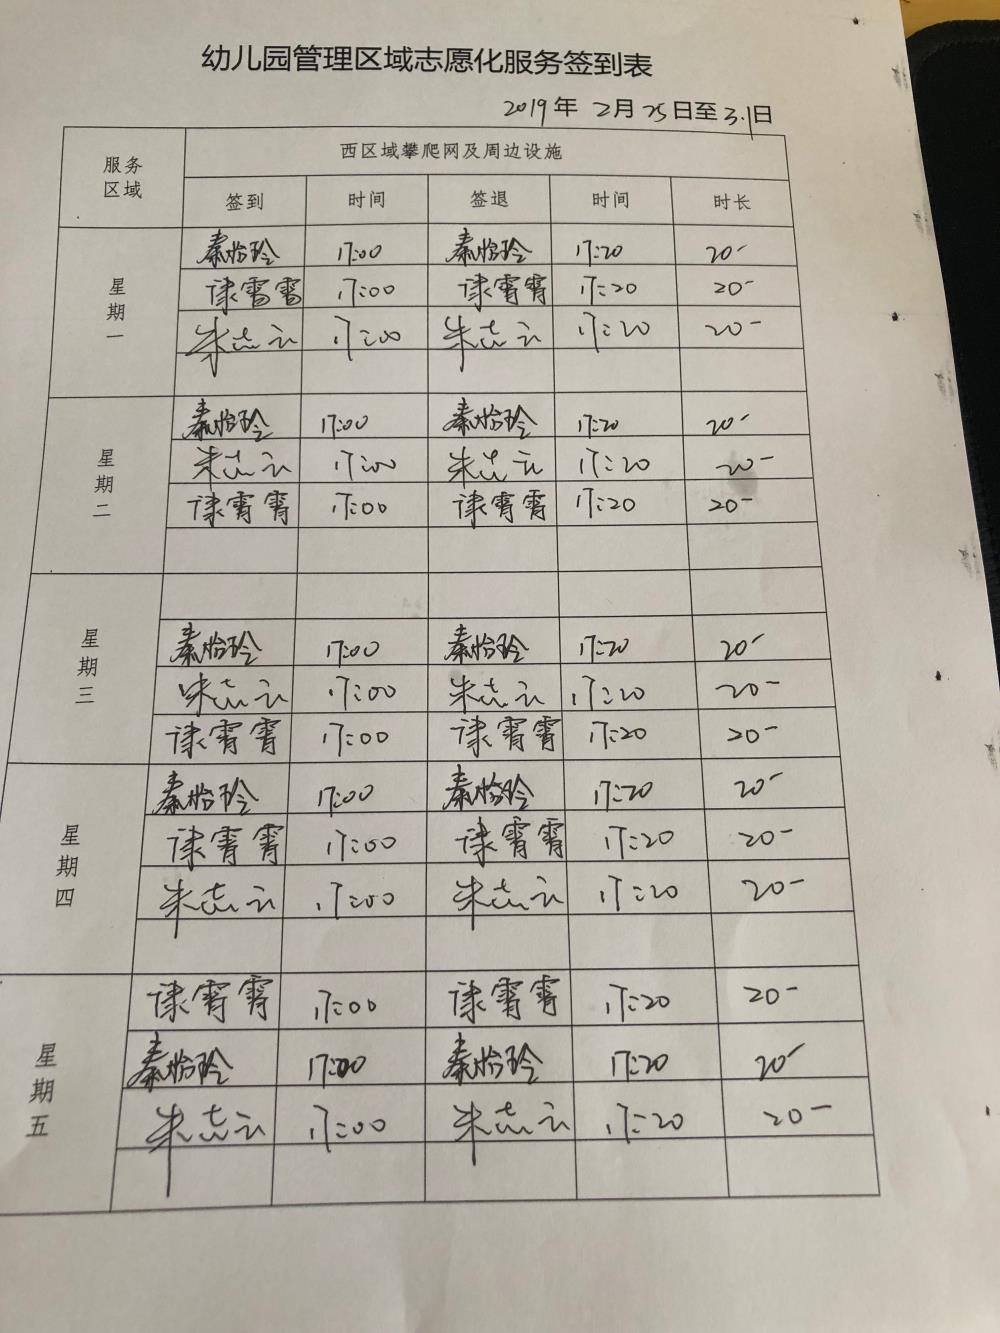 幼儿园管理区域志愿化服务签到表
2019年 2月 25日至 3.1日
服务区域 西区域攀爬网及周边设施
签到 时间 签退 时间 时长
星期一
秦怡玲 17:00 秦怡玲 17:20 20-
谏雷雷 17:00 谏霄霄 17:20 20-
朱志云 17:00 朱志云 17:20 20-
星期二
秦怡玲 17:00 秦怡玲 17:20 20-
朱志云 17:00 朱志云 17:20 20-
谏霄霄 17:00 谏霄霄 17:20 20-
星期三
秦怡玲 17:00 秦怡玲 17:20 20-
朱志云 17:00 朱志云 17:20 20-
谏霄霄 17:00 谏霄霄 17:20 20-
星期四
秦怡玲 17:00 秦怡玲 17:20 20-
谏霄霄 17:00 谏霄霄 17:20 20-
朱志云 17:00 朱志云 17:20 20-
星期五
谏霄霄 17:00 谏霄霄 17:20 20-
秦怡玲 17:00 秦怡玲 17:20 20-
朱志云 17:00 朱志云 17:20 20-